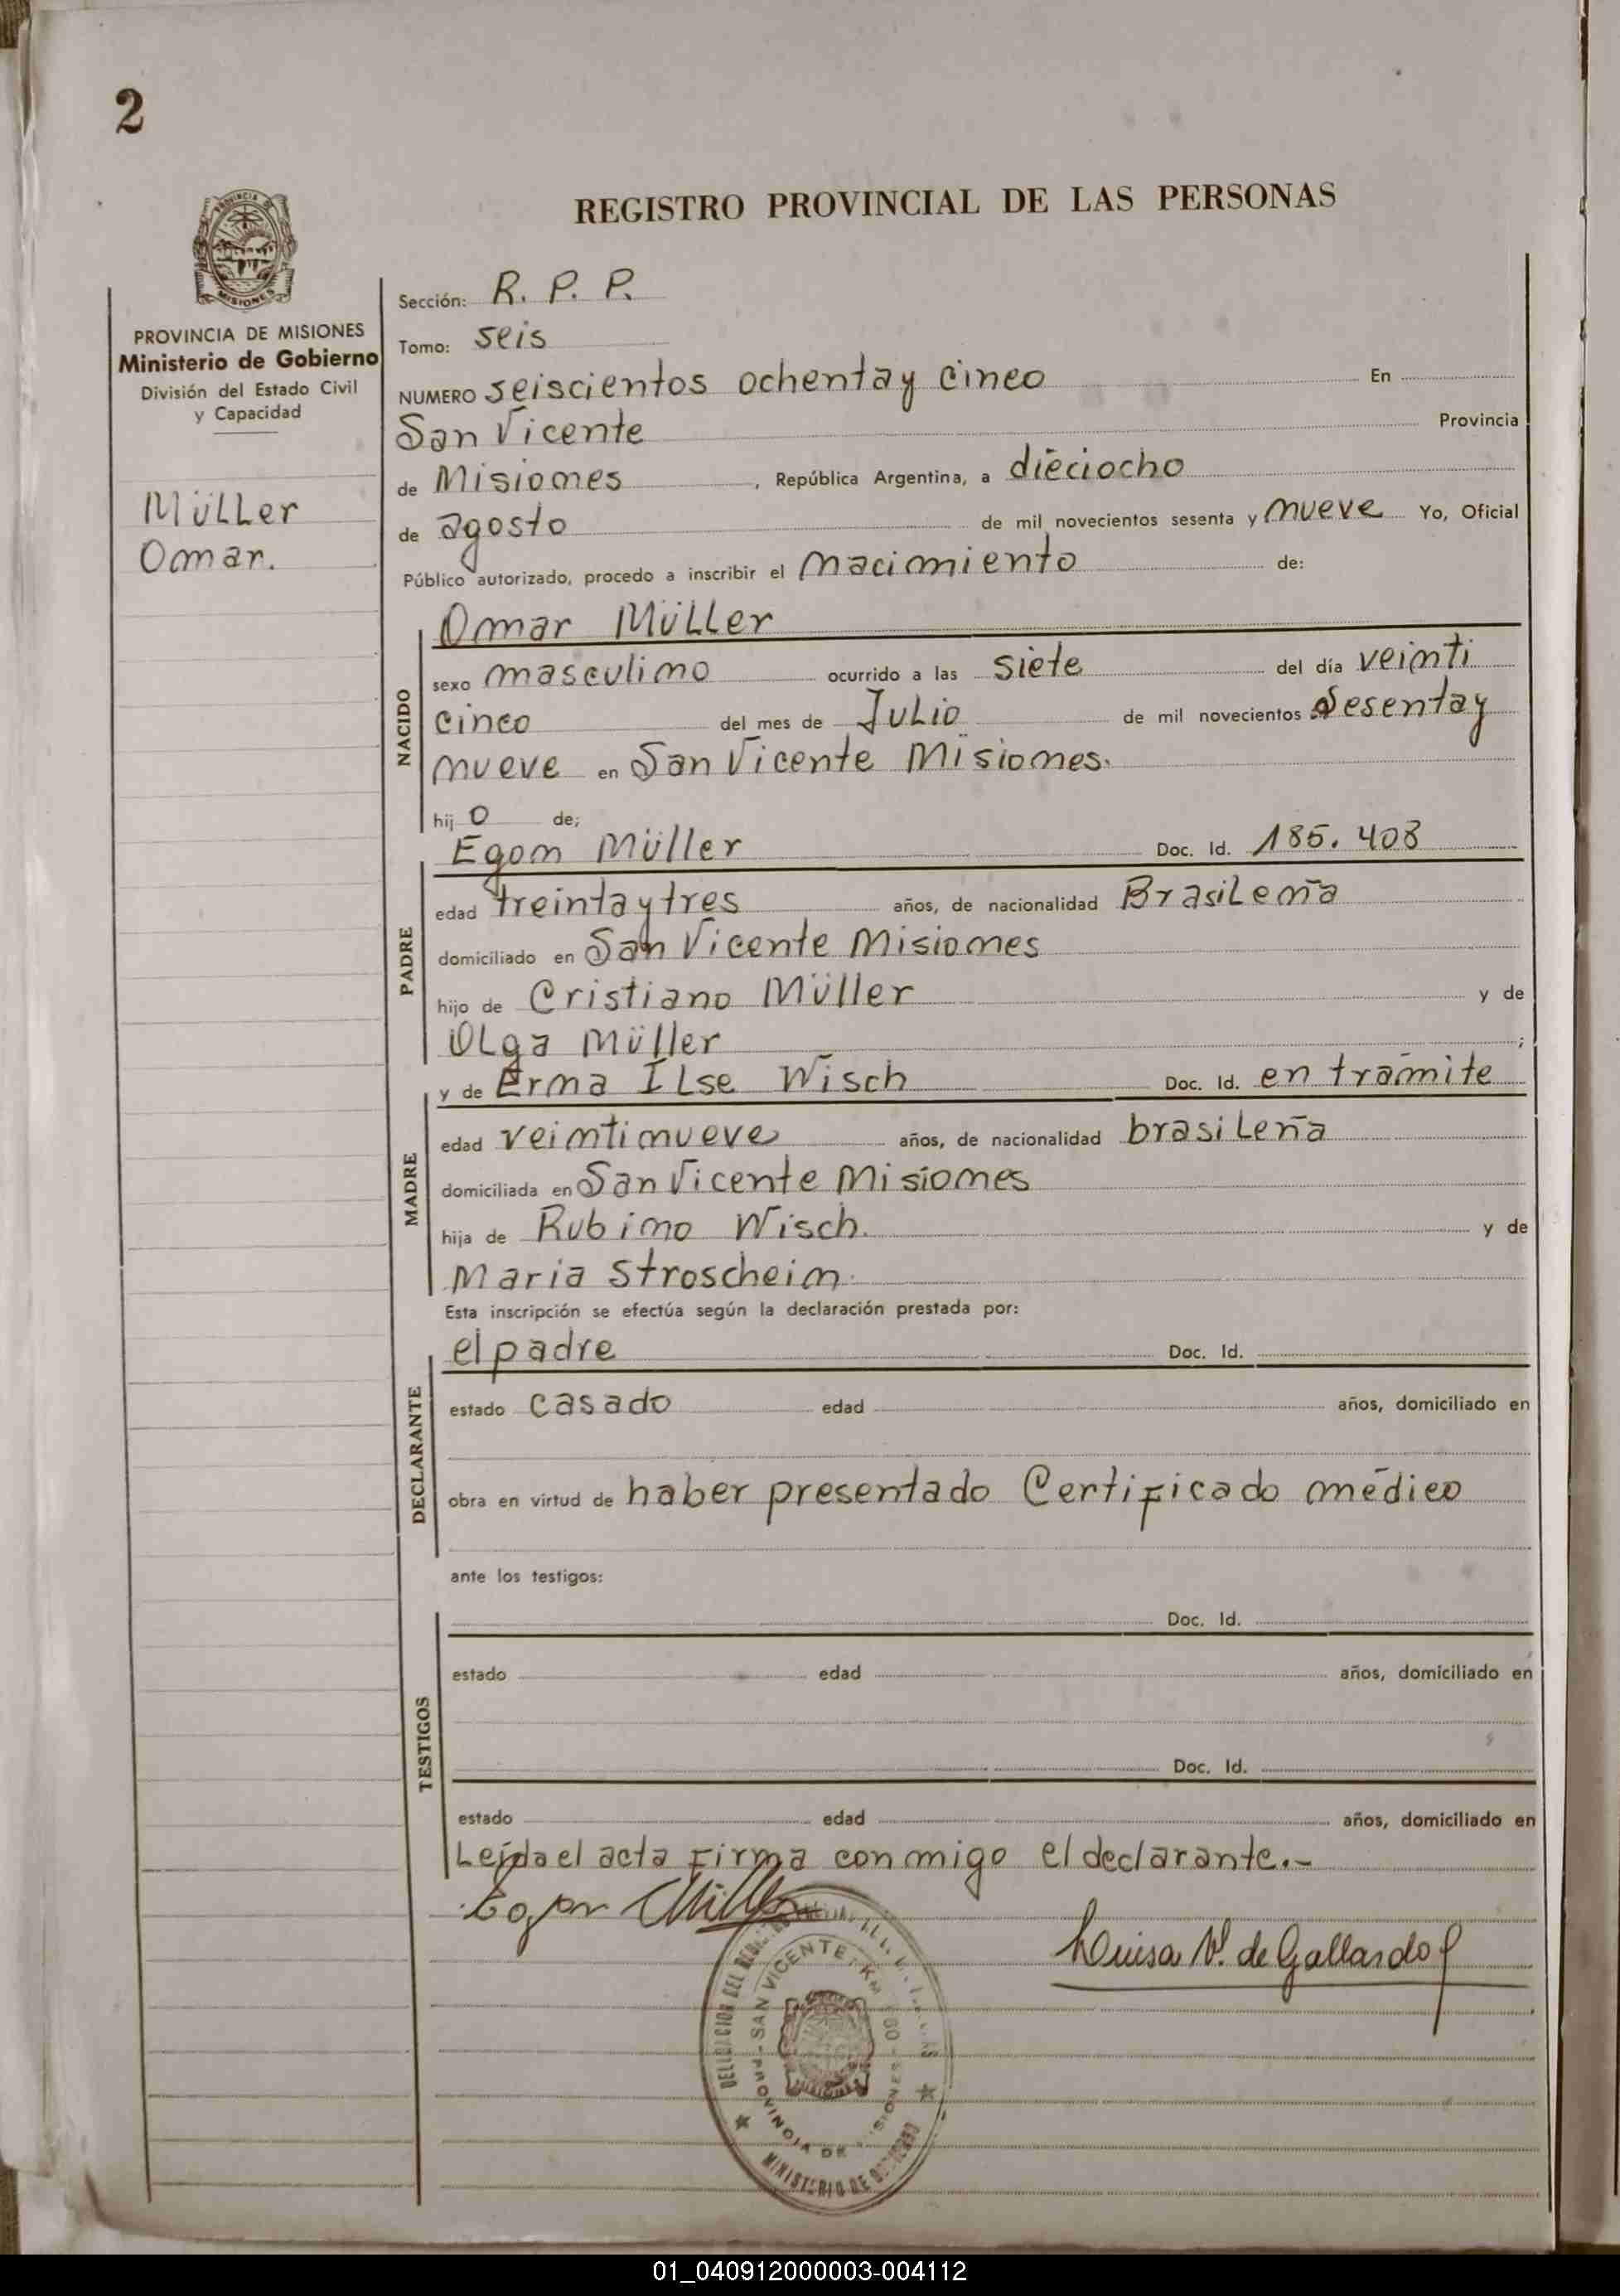 2
REGISTRO PROVINCIAL DE LAS PERSONAS
PROVINCIA DE MISIONES
Ministerio de Gobierno
División del Estado Civil
y Capacidad
Müller
Omar.
Sección: R. P. P.
Tomo: seis
NUMERO seiscientos ochenta y cinco En
San Vicente Provincia
de Misiones, República Argentina, a dieciocho
de agosto de mil novecientos sesenta y nueve Yo, Oficial
Público autorizado, procedo a inscribir el nacimiento de:
NACIDO
Omar Müller
sexo masculino ocurrido a las siete del día veinti
cinco del mes de Julio de mil novecientos sesenta y
nueve en San Vicente Misiones.
hij o de;
PADRE
Egon Müller Doc. Id. 185.408
edad treinta y tres años, de nacionalidad Brasileña
domiciliado en San Vicente Misiones
hijo de Cristiano Müller y de
Olga Müller ;
MADRE
y de Erma Ilse Wisch Doc. Id. en trámite
edad veintinueve años, de nacionalidad brasileña
domiciliada en San Vicente Misiones
hija de Rubino Wisch. y de
Maria Stroschein.
Esta inscripción se efectúa según la declaración prestada por:
DECLARANTE
el padre Doc. Id.
estado casado edad años, domiciliado en
obra en virtud de haber presentado Certificado médico
ante los testigos:
TESTIGOS
Doc. Id.
estado edad años, domiciliado en
Doc. Id.
estado edad años, domiciliado en
Leída el acta firma conmigo el declarante.-
Egon Müller
Luisa V. de Gallardo
SAN VICENTE, Km
PROVINCIA DE MISIONES
MINISTERIO DE GOBIERNO
01_040912000003-004112